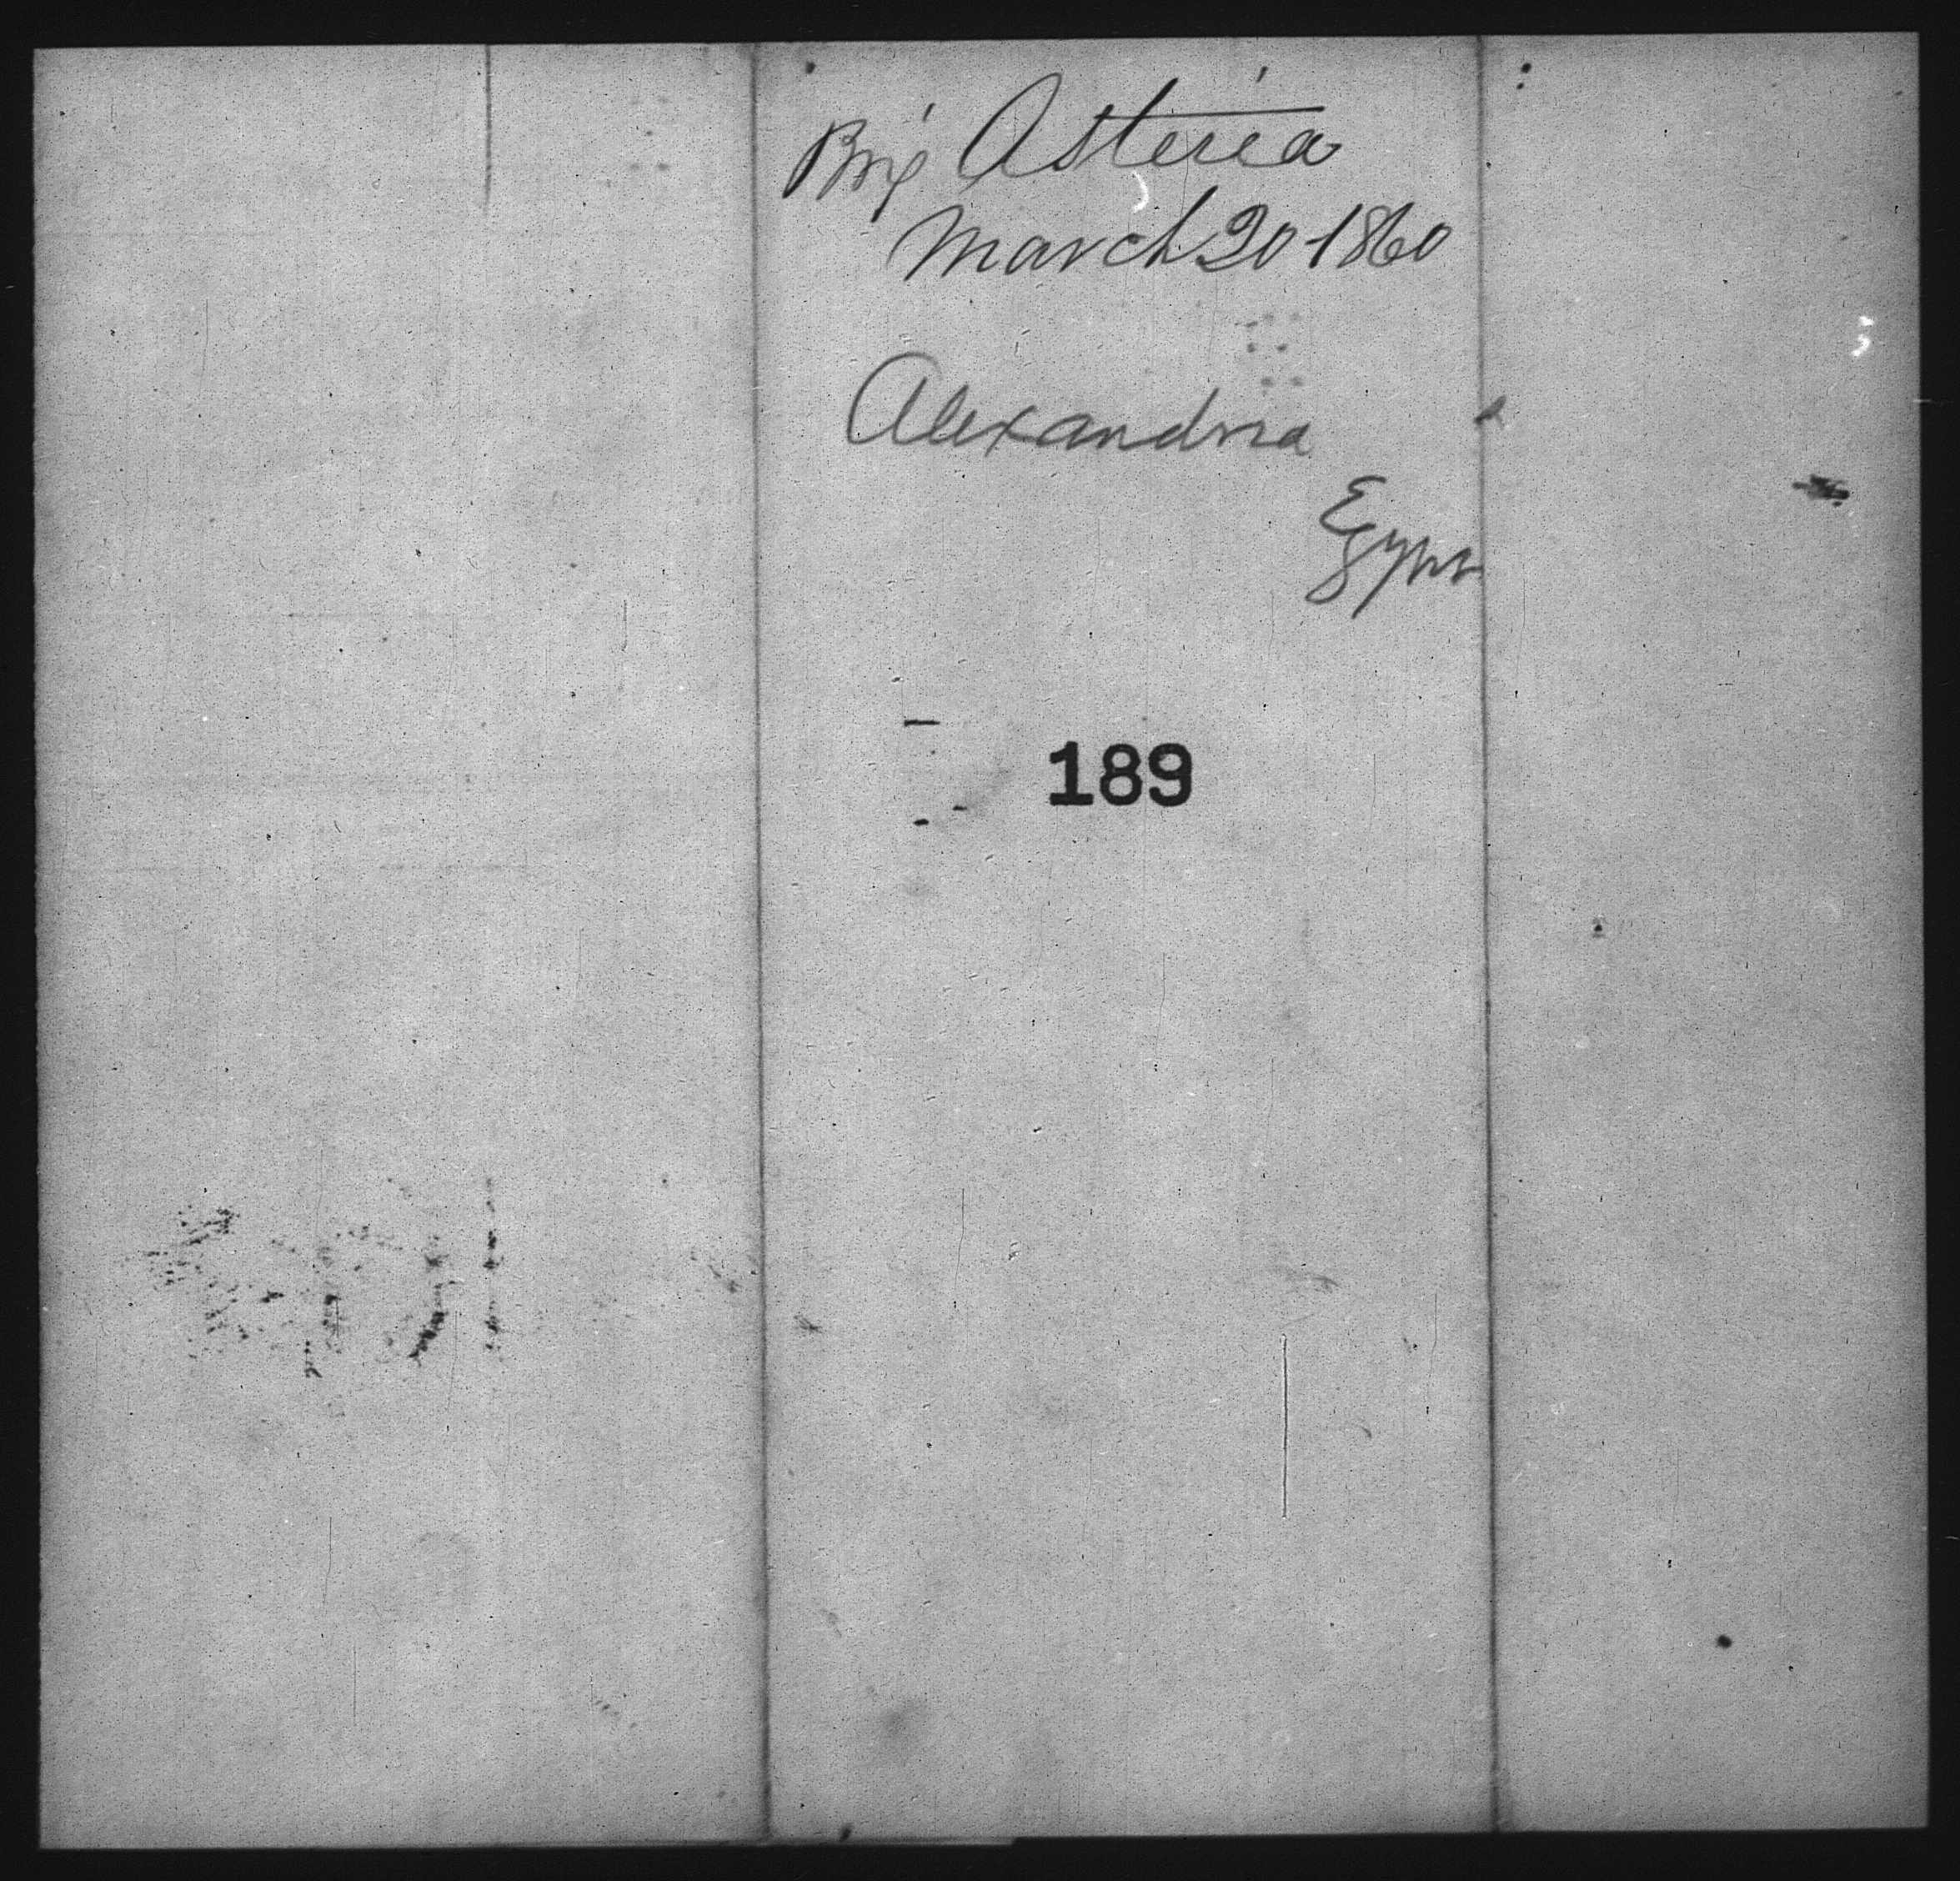 Brig Asteria
March 20 1860
Alexandria
Egypt
189